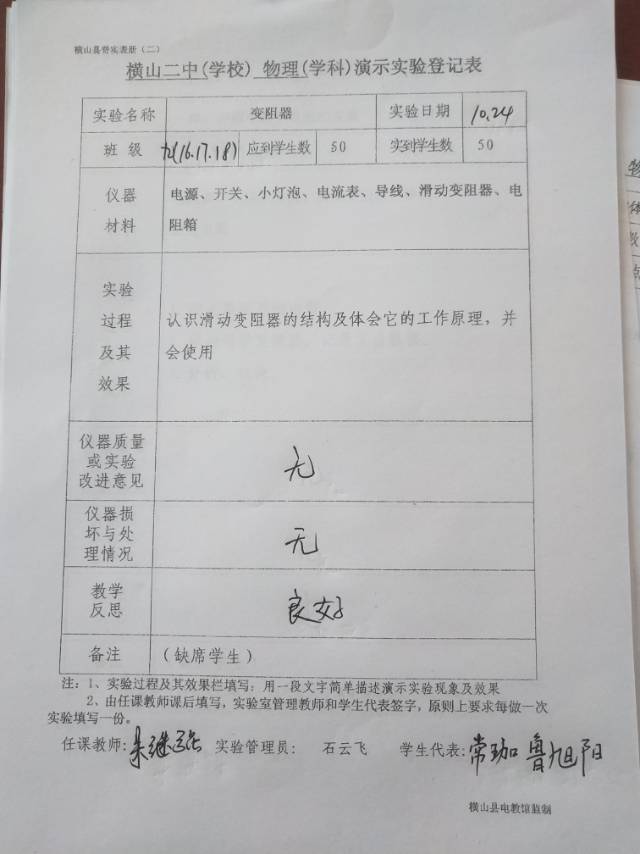 横山县劳实表册（二）
横山二中(学校) 物理(学科)演示实验登记表
实验名称 变阻器 实验日期 10.24
班 级 九(16.17.18) 应到学生数 50 实到学生数 50
仪器
材料
电源、开关、小灯泡、电流表、导线、滑动变阻器、电
阻箱
实验
过程
及其
效果
认识滑动变阻器的结构及体会它的工作原理，并
会使用
仪器质量
或实验
改进意见
无
仪器损
坏与处
理情况
无
教学
反思
良好
备注 （缺席学生）
注：1、实验过程及其效果栏填写：用一段文字简单描述演示实验现象及效果
2、由任课教师课后填写，实验室管理教师和学生代表签字，原则上要求每做一次
实验填写一份。
任课教师: 实验管理员： 石云飞 学生代表: 常珈 鲁旭阳
横山县电教馆监制